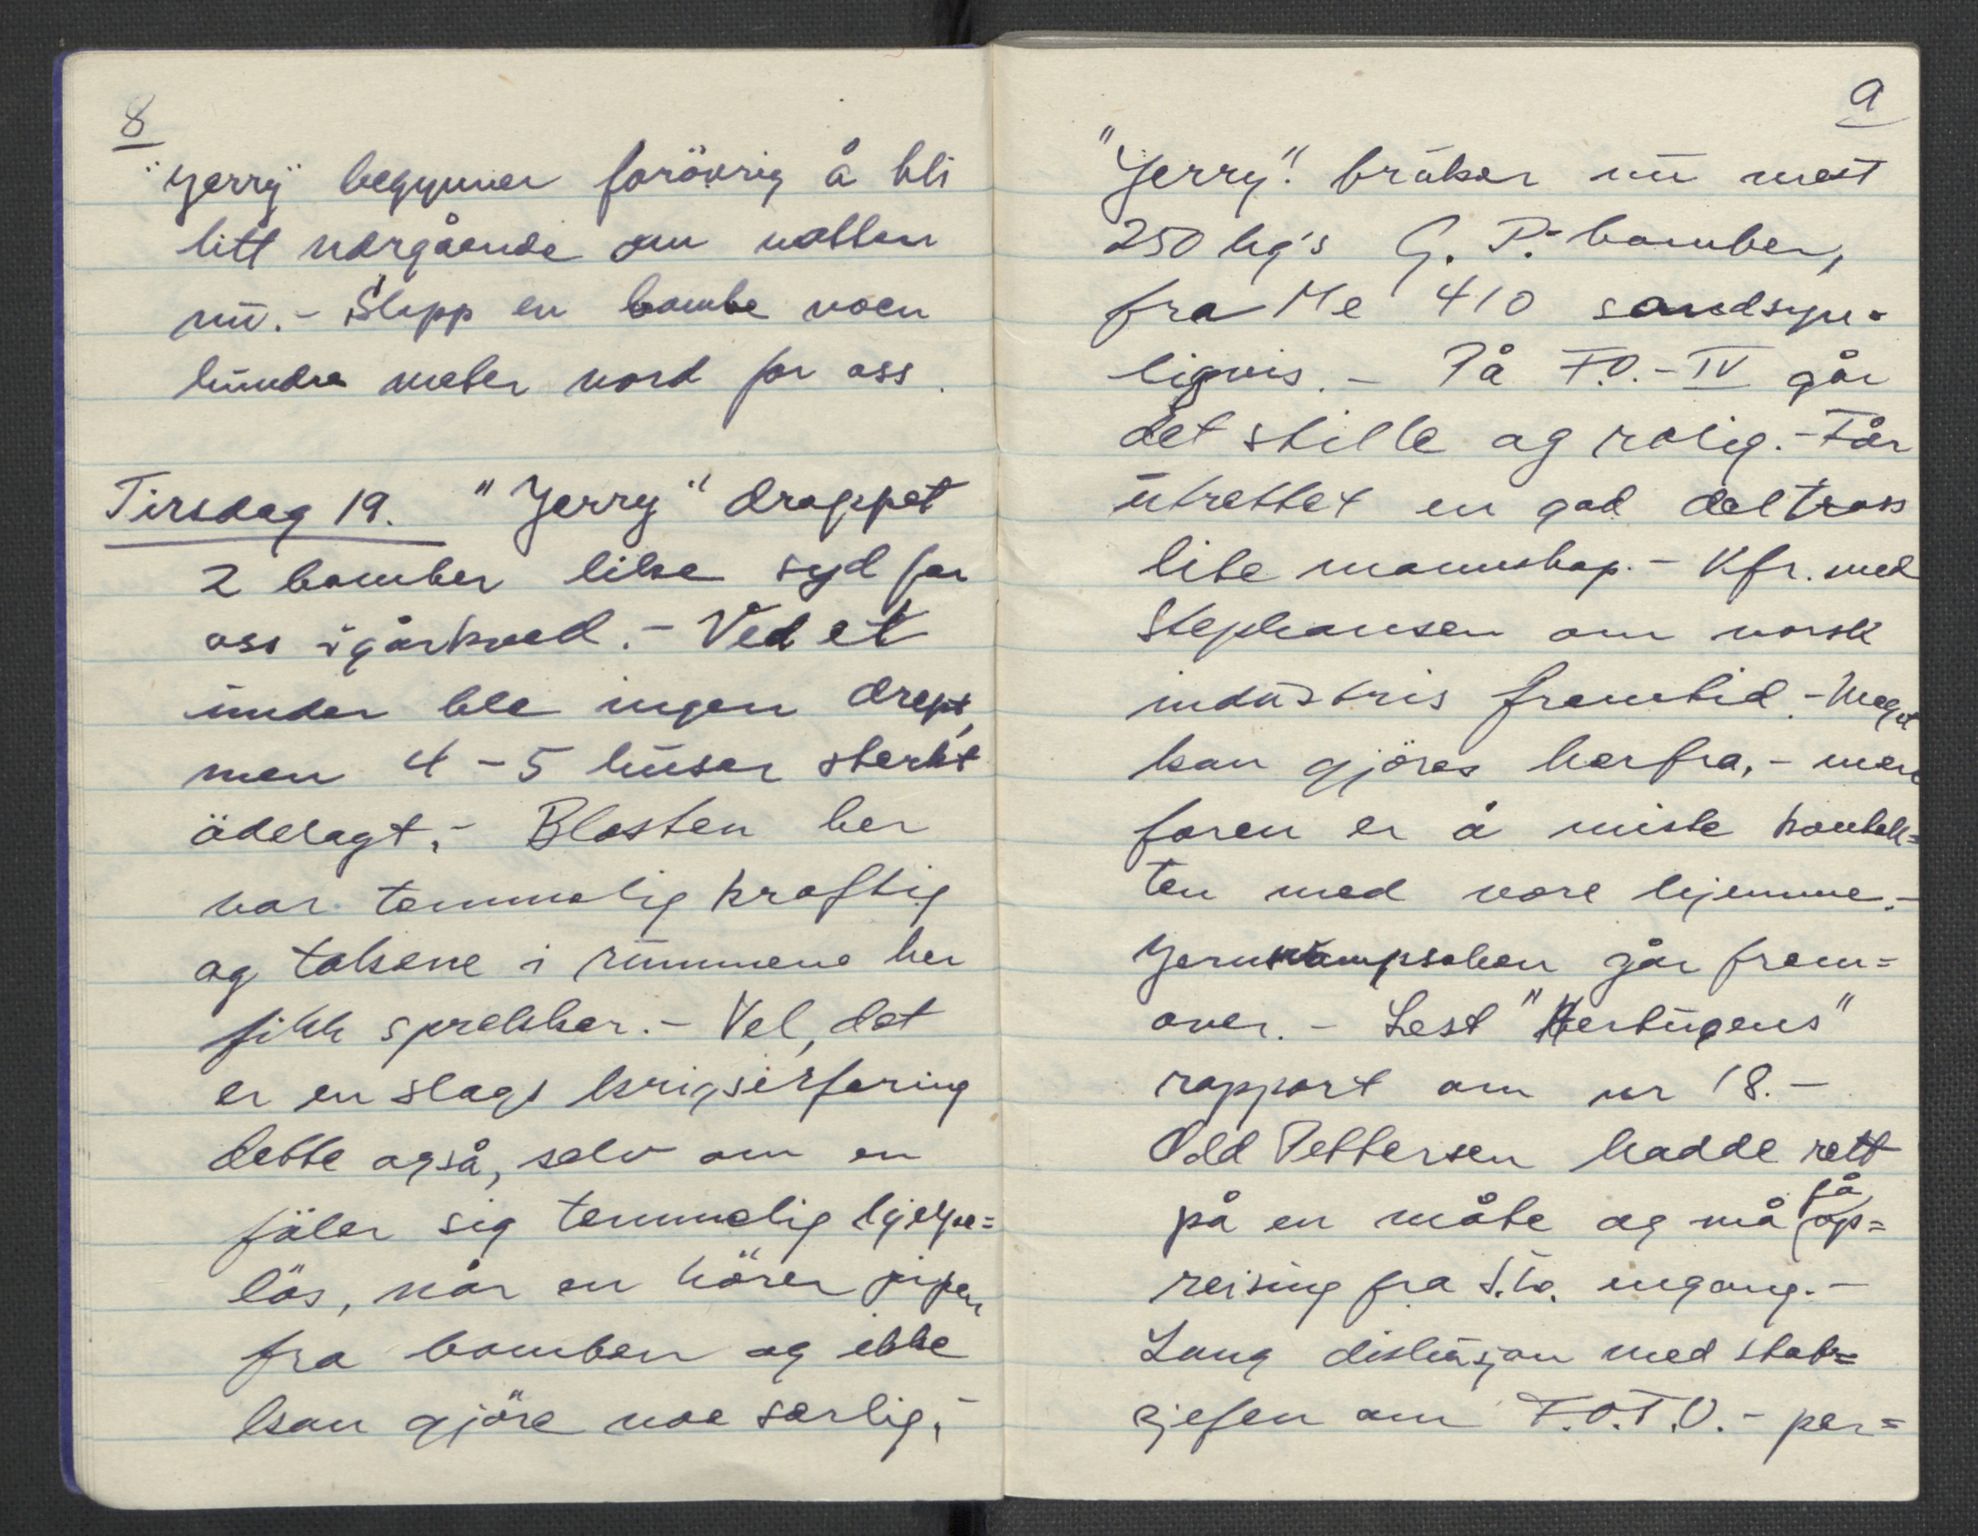 8
"Jerry" begynner forövrig å bli
litt nærgående om natten
nu.- Slapp en bombe noen
hundre meter nord for oss.
Tirsdag 19. "Jerry" droppet
2 bomber like syd for
oss igårkveld.- Ved et
under ble ingen drept,
men 4-5 huser sterkt
ödelagt.- Blasten her
var temmelig kraftig
og takene i rummene her
fikk sprekker.- Vel, det
er en slags krigserfaring
dette også, selv om en
föler sig temmelig hjelpe=
lös, når en hörer pipen
fra bomben og ikke
kan gjöre noe særlig.-
9
"Jerry". bruker nu mest
250 kg's G.P.-bomber,
fra Me 410 sandsyn=
ligvis.- På F.O.-IV går
det stille og rolig.- Får
utrettet en god del tross
lite mannskap.- Kfr. med
Stephansen om norsk
industris fremtid.- Meget
kan gjöres herfra,- men
faren er å miste kontak=
ten med våre hjemme.-
Jernsvampsaken går frem=
over.- Lest "Hertugens"
rapport om nr 18.-
Odd Pettersen hadde rett
på en måte og må få op=
reising fra engang.-
Lang diskusjon med stabs=
sjefen om F.O.T.U.- per=